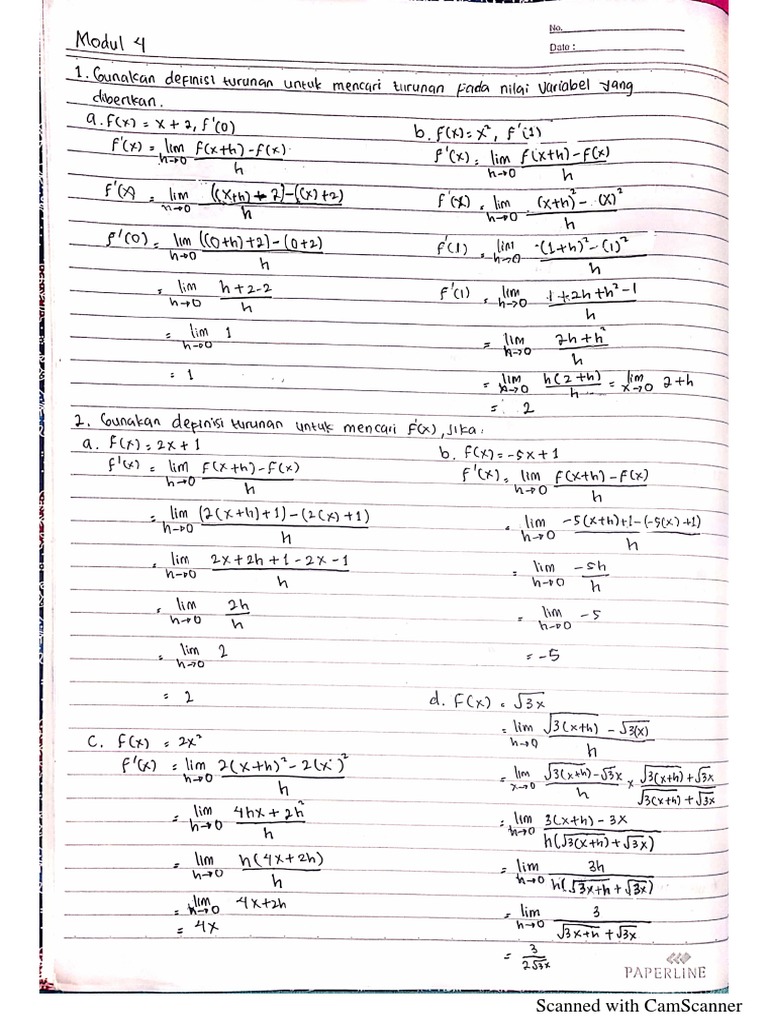 No.
Modul 4
Date :
1. Gunakan definisi turunan untuk mencari turunan pada nilai variabel yang
diberikan.
a. f(x) = x + 2, f'(0)
f'(x) = lim h→0 f(x+h) - f(x) / h
f'(x) = lim h→0 ((x+h) + 2) - ((x) + 2) / h
f'(0) = lim h→0 ((0+h) + 2) - (0+2) / h
= lim h→0 h + 2 - 2 / h
= lim h→0 1
= 1
b. f(x) = x², f'(1)
f'(x) = lim h→0 f(x+h) - f(x) / h
f'(x) = lim h→0 (x+h)² - (x)² / h
f'(1) = lim h→0 (1+h)² - (1)² / h
f'(1) = lim h→0 1 + 2h + h² - 1 / h
= lim h→0 2h + h² / h
= lim x→0 h(2+h) / h = lim x→0 2+h
= 2
2. Gunakan definisi turunan untuk mencari f'(x), jika :
a. f(x) = 2x + 1
f'(x) = lim h→0 f(x+h) - f(x) / h
= lim h→0 (2(x+h) + 1) - (2(x) + 1) / h
= lim h→0 2x + 2h + 1 - 2x - 1 / h
= lim h→0 2h / h
= lim h→0 2
= 2
b. f(x) = -5x + 1
f'(x) = lim h→0 f(x+h) - f(x) / h
= lim h→0 -5(x+h) + 1 - (-5(x) + 1) / h
= lim h→0 -5h / h
= lim h→0 -5
= -5
c. f(x) = 2x²
f'(x) = lim h→0 2(x+h)² - 2(x)² / h
= lim h→0 4hx + 2h² / h
= lim h→0 h(4x + 2h) / h
= lim h→0 4x + 2h
= 4x
d. f(x) = √3x
= lim h→0 √3(x+h) - √3(x) / h
= lim x→0 √3(x+h) - √3x / h × √3(x+h) + √3x / √3(x+h) + √3x
= lim h→0 3(x+h) - 3x / h(√3(x+h) + √3x)
= lim h→0 3h / h(√3x+h + √3x)
= lim h→0 3 / √3x+h + √3x
= 3 / 2√3x
PAPERLINE
Scanned with CamScanner